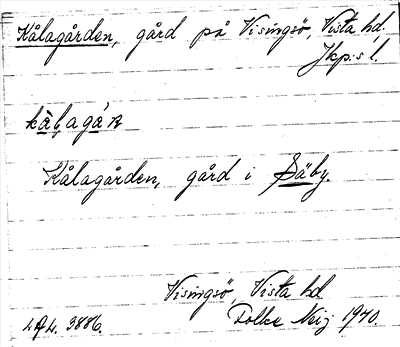 Kålagården, gård på Visingsö, Vista hd,
Jkp:s l.
kålagán
Kålagården, gård i Säby.
Visingsö, Vista hd
Folke Neij 1940.